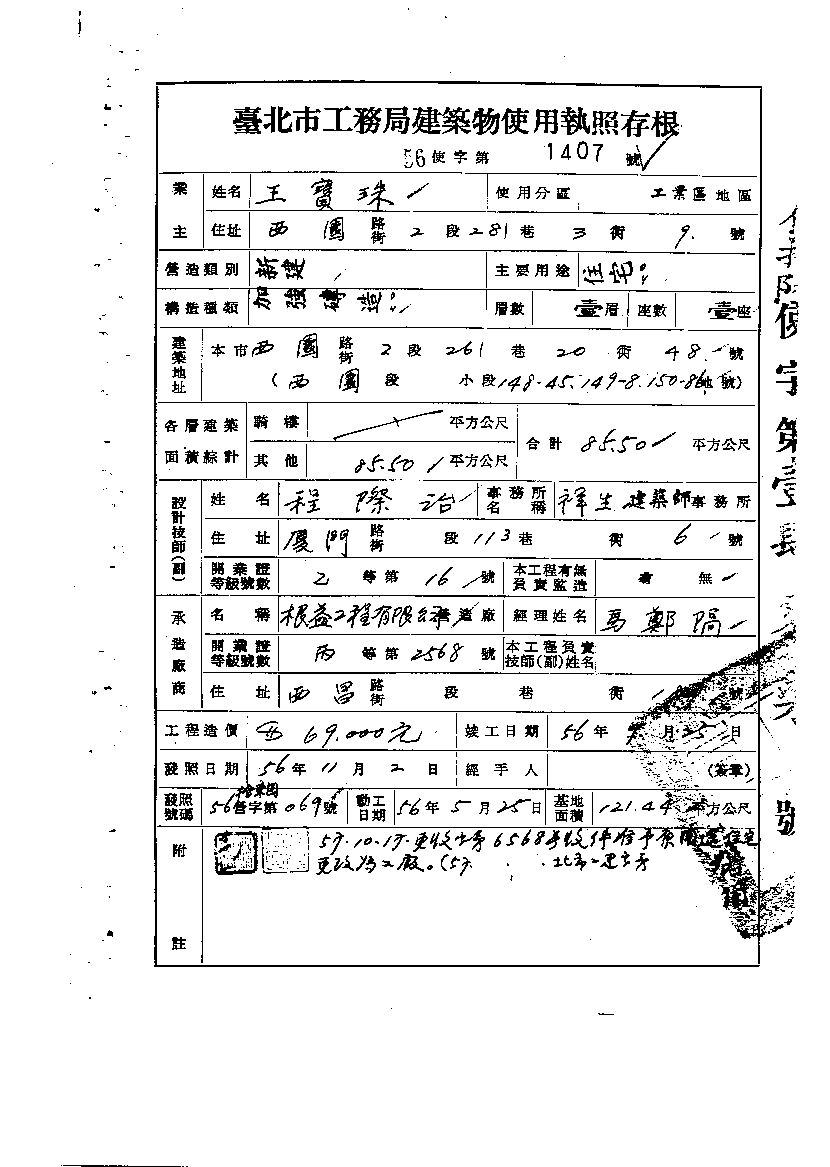 臺北市工務局建築物使用執照存根
56使字第 1407 號
業主 姓名 王寶珠 使用分區 工業區地區
住址 西園路街2段281巷3衖9號
營造類別 新建 主要用途 住宅
構造種類 加強磚造 層數 壹層 座數 壹座
建築地址 本市西園路街2段261巷20衖48號
(西園段 小段148-45.149-8.150-86地號)
各層建築面積綜計 騎樓 平方公尺 合計 85.50 平方公尺
其他 85.50 平方公尺
設計技師(副) 姓名 程際治 事務所名稱 祥生建築師事務所
住址 廈門路街 段113巷 衖6號
開業證等級號數 乙等第16號 本工程有無負責監造 有 無
承造廠商 名稱 根益工程有限公司營造廠 經理姓名 馬鄭
開業證等級號數 丙等第2568號 本工程負責技師(副)姓名
住址 西昌路街 段 巷 衖 號
工程造價 69.000元 竣工日期 56年 月25日
發照日期 56年11月2日 經手人 (簽章)
發照號碼 56營字第069號 動工日期 56年5月25日 基地面積 121.44平方公尺
附註 57.10.17.更收字第6568號收件
更改為工廠.(57. 北市工建字第
使字第壹 號